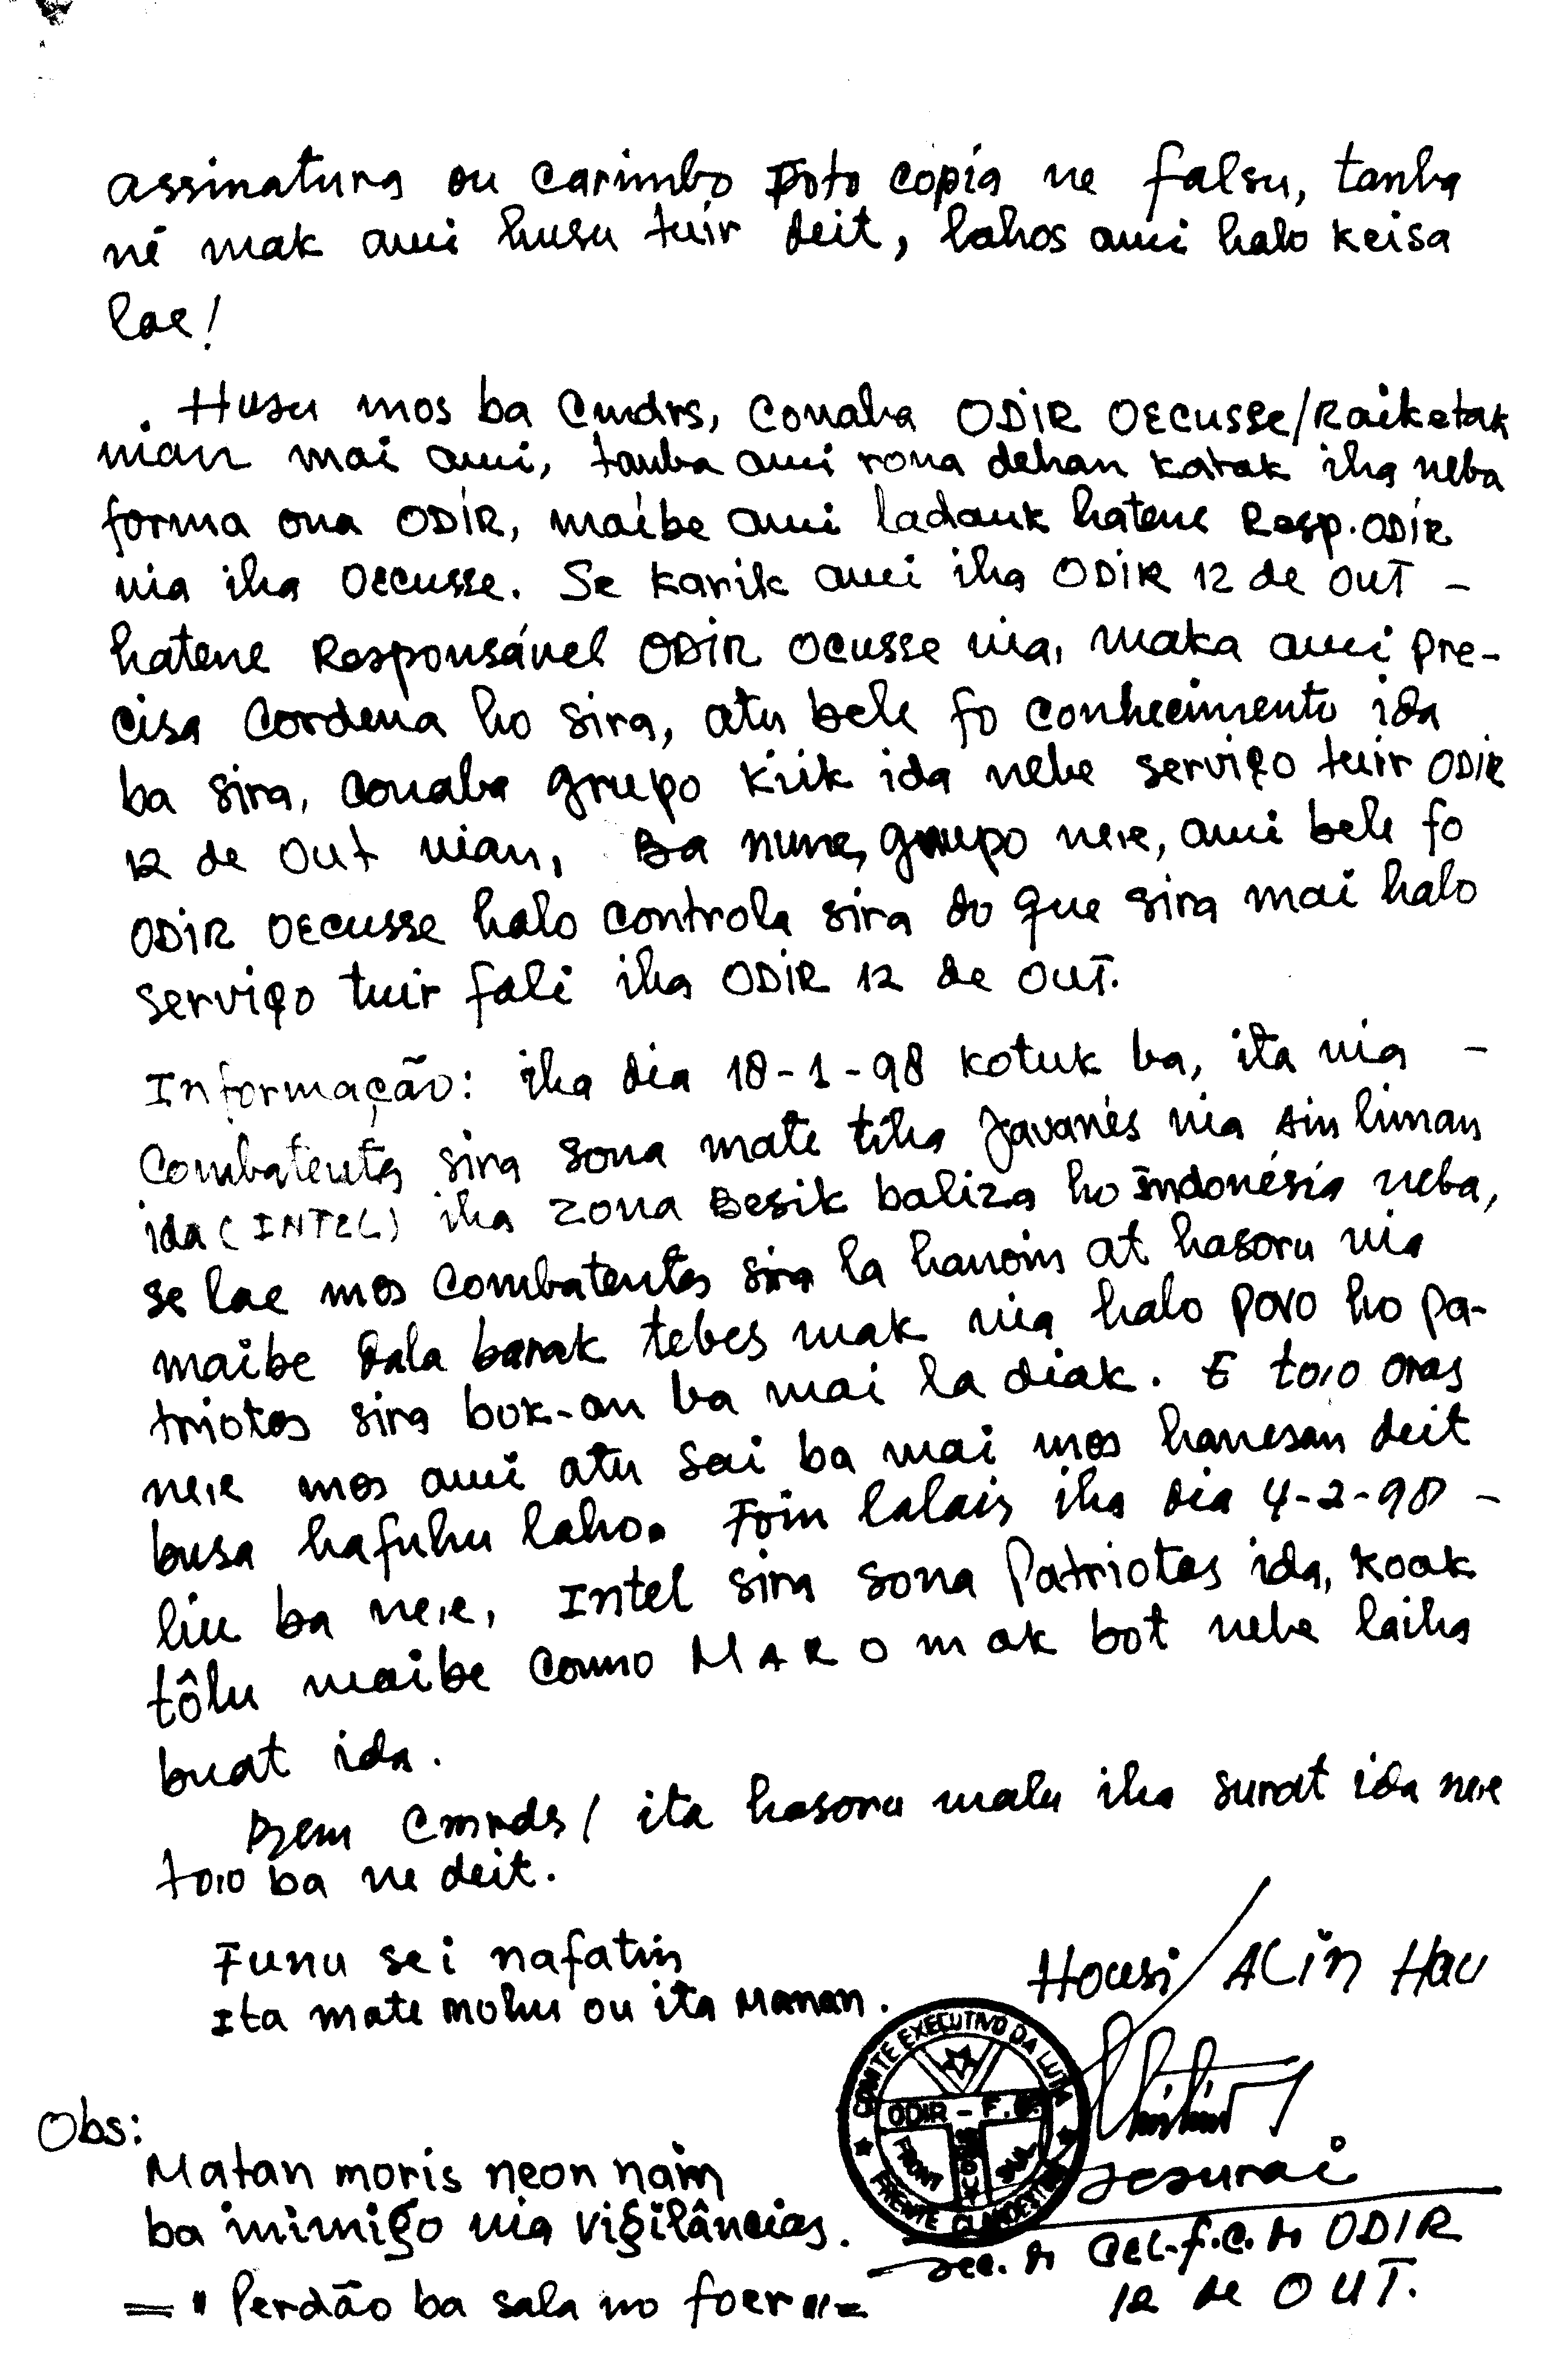 assinatura ou carimbo Foto copia ne falsu, tanba
né mak ami husu tuir deit, lahos ami halo keisa
lae!
Husu mos ba Cmdrs, Conaba ODIR OECUSSE/Raiketak
nian mai ami, tanba ami rona dehan katak iha neba
forma ona ODIR, maibe ami ladauk hatene Resp. ODIR
nia iha Oecusse. Se karik ami iha ODIR 12 de OUT -
hatene Responsável ODIR Ocusse nia, maka ami pre-
cisa Cordena ho sira, atu bele fo conhecimento ida
ba sira, conaba grupo kiik ida nebe serviço tuir ODIR
12 de Out nian, Ba nune, grupo ne,e, ami bele fo
ODIR OECUSSE halo controla sira do que sira mai halo
serviço tuir fali iha ODIR 12 de OUT.
Informação: iha dia 18-1-98 kotuk ba, ita nia -
Combatentes sira sona mate tiha Javanés nia ain liman
ida (INTEL) iha zona Besik baliza ho Indonésia neba,
se lae mos Combatentes sira la hanoin at hasoru nia
maibe dala barak tebes mak nia halo povo ho pa-
triotas sira bok-an ba mai la diak. E to,o oras
ne,e mos ami atu sai ba mai mos hanesan deit
busa hafuhu laho. Foin lalais iha dia 4-2-98 -
liu ba ne,e, Intel sira sona Patriotas ida, koak
tôlu maibe como MAROmak bot nebe laiha
buat ida.
Bem Cmrds / ita hasoru malu iha surat ida ne,e
to,o ba ne deit.
Funu sei nafatin
Ita mate mohu ou ita Manan.
Housi / ALin Hau
COMITE EXECUTIVO DA LUTA
ODIR - F.C.
FRENTE CLANDESTINA
Sec. do Cel-F.C. do ODIR
12 de OUT.
Obs:
Matan moris neon nain
ba inimigo nia vigilâncias.
= " Perdão ba sala no foer " =